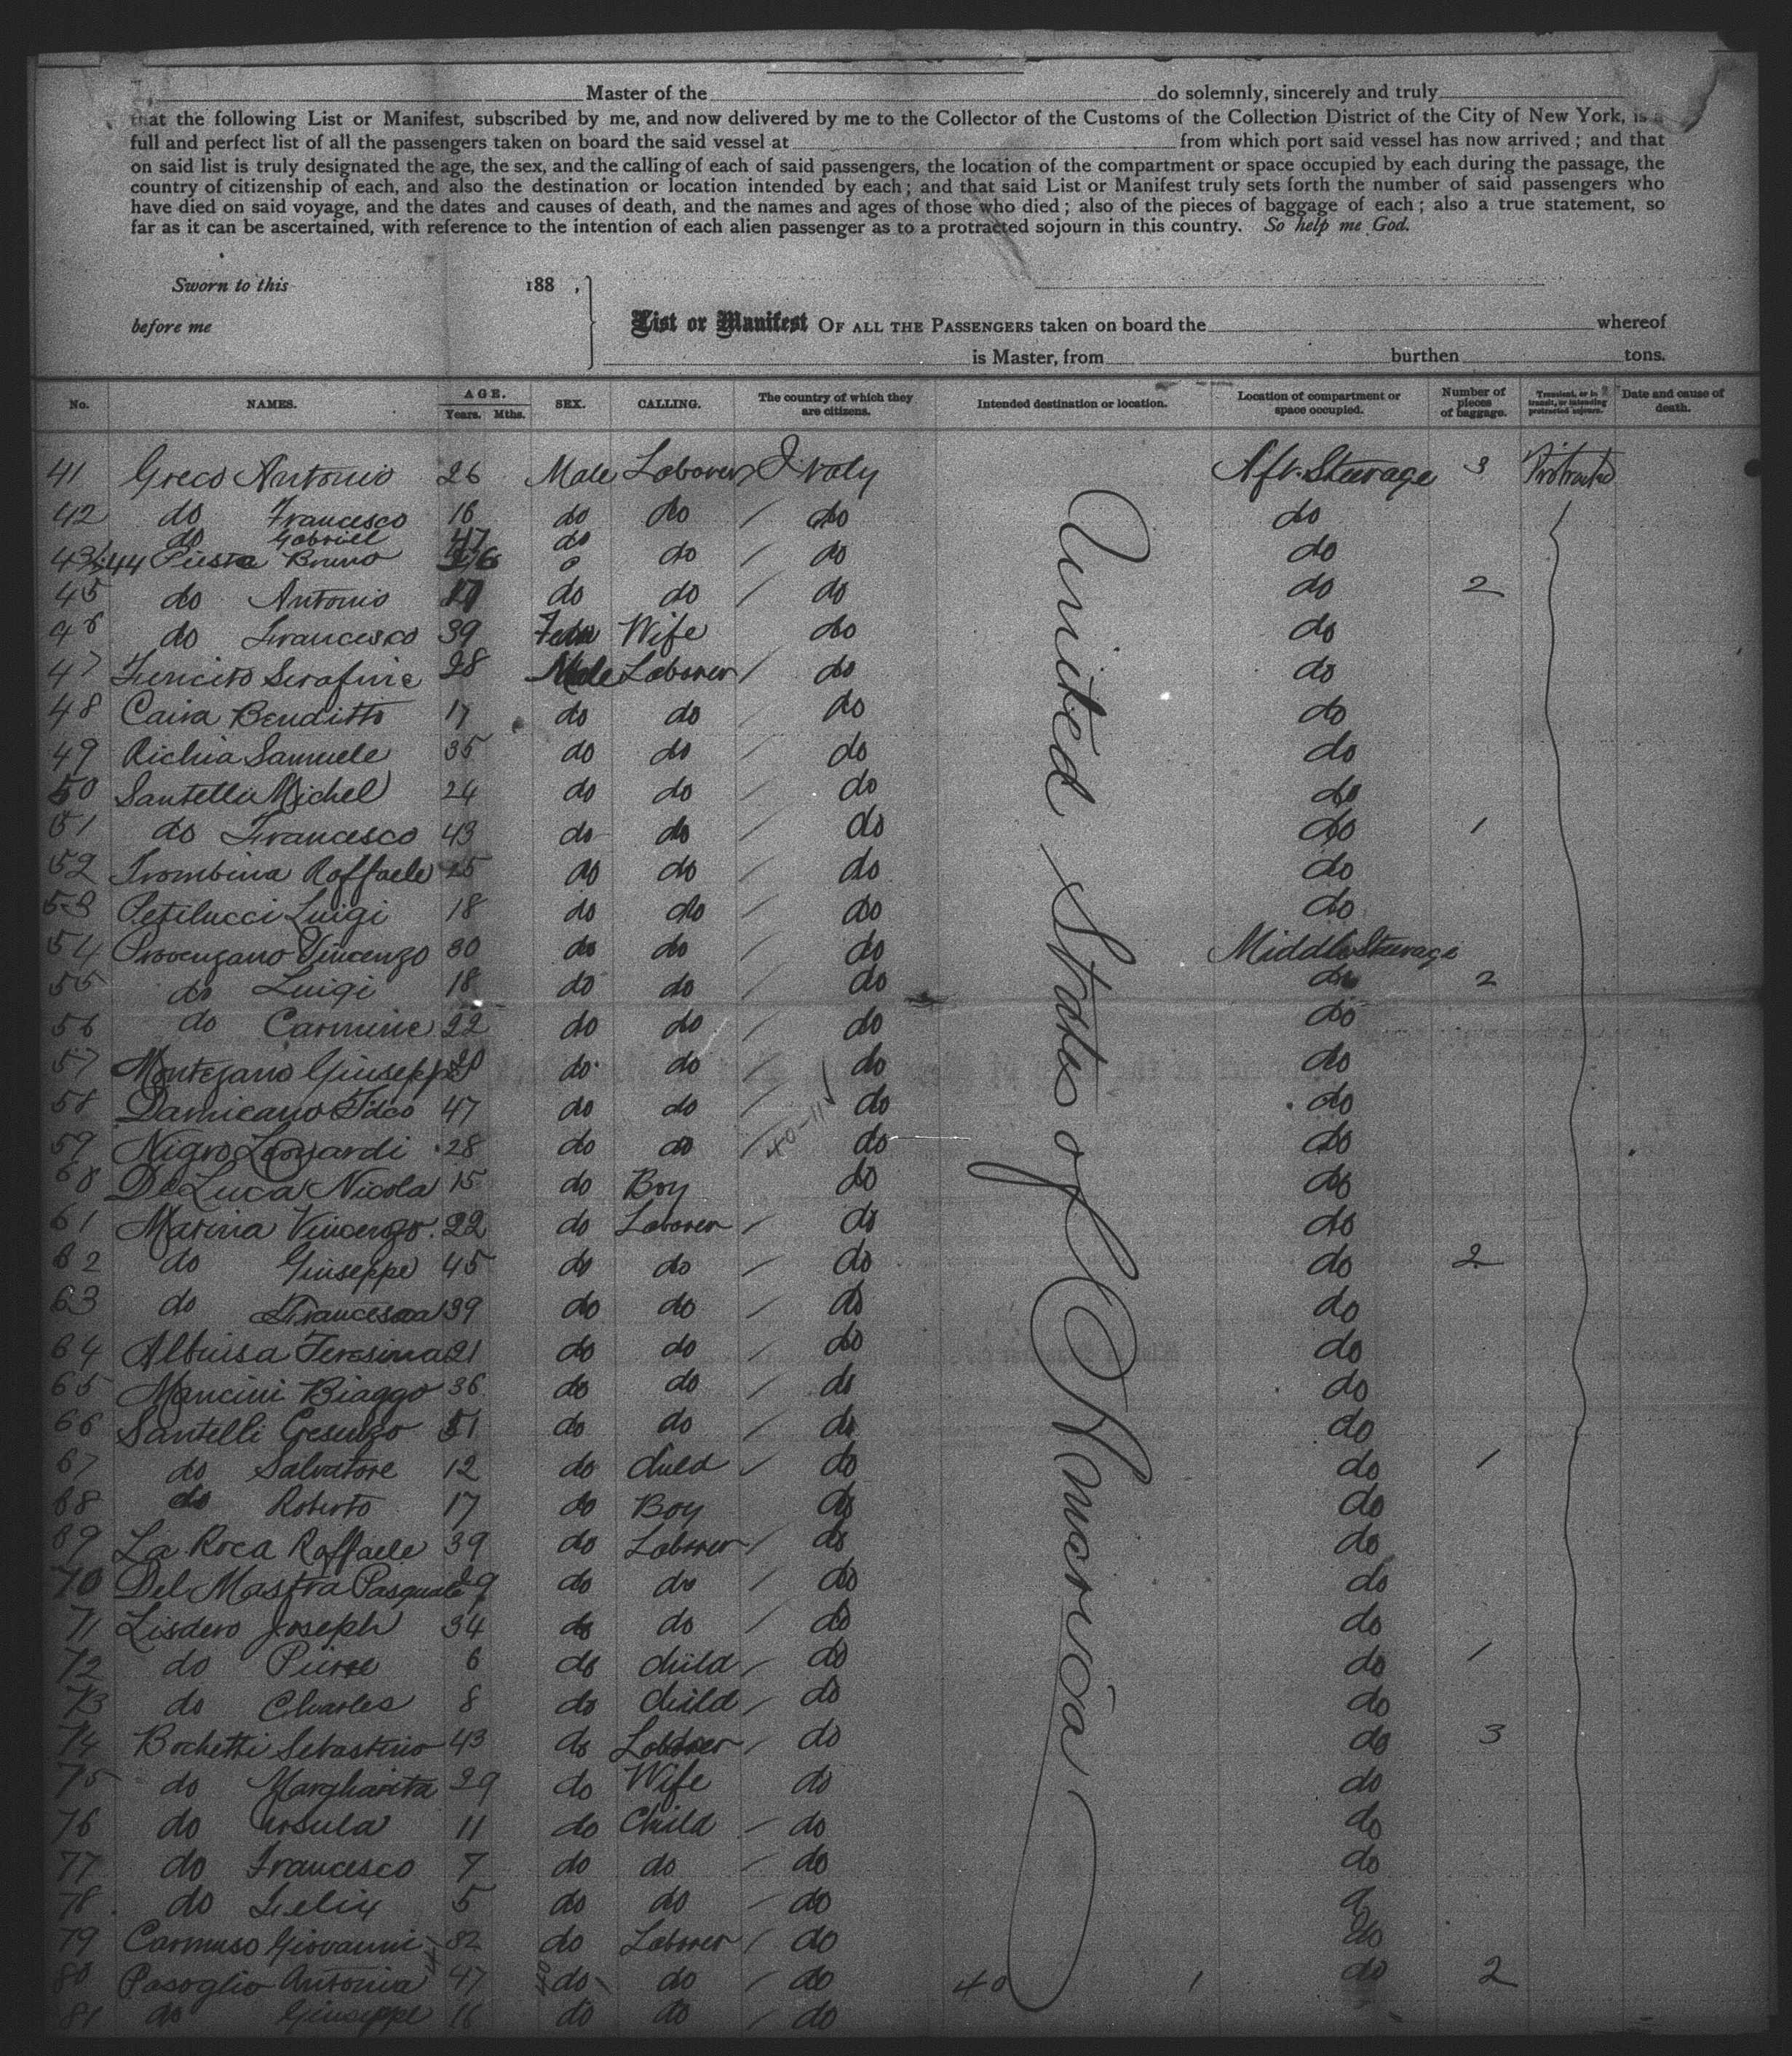 Master of the do solemnly, sincerely and truly
that the following List or Manifest, subscribed by me, and now delivered by me to the Collector of the Customs of the Collection District of the City of New York, is a
full and perfect list of all the passengers taken on board the said vessel at from which port said vessel has now arrived ; and that
on said list is truly designated the age, the sex, and the calling of each of said passengers, the location of the compartment or space occupied by each during the passage, the
country of citizenship of each, and also the destination or location intended by each ; and that said List or Manifest truly sets forth the number of said passengers who
have died on said voyage, and the dates and causes of death, and the names and ages of those who died ; also of the pieces of baggage of each ; also a true statement, so
far as it can be ascertained, with reference to the intention of each alien passenger as to a protracted sojourn in this country. So help me God.
Sworn to this 188 ,
before me
List or Manifest OF ALL THE PASSENGERS taken on board the whereof
is Master, from burthen tons.
No. NAMES. AGE. Years. Mths. SEX. CALLING. The country of which they are citizens. Intended destination or location. Location of compartment or space occupied. Number of pieces of baggage. Transient, or in transit, or intending protracted sojourn. Date and cause of death.
United States of America
41 Greco Antonio 26 Male Laborer Italy Aft. Steerage 3 Protracted
42 do Francesco 16 do do / do do
do Gabriel 47 do
43 44 Bruno do / do do
45 do Antonio do do / do do 2
46 do Francesco 39 Wife do do
47 Serafine 28 Male Laborer / do do
48 Caiva Benditto 17 do do / do do
49 Richia Samuele 35 do do / do do
50 Santelli Michel 24 do do / do do
51 do Francesco 43 do do / do do 1
52 Trombina Raffaele 25 do do / do do
53 Petilucci Luigi 18 do do / do do
54 Provenzano Vincenzo 30 do do / do Middle Steerage
55 do Luigi 18 do do / do do 2
56 do Carmine 22 do do / do do
57 Montezano Giuseppe do do / do do
58 Damicano 47 do do / do do
59 Nigro Leonardi 28 do do / do do
60 De Luca Nicola 15 do Boy do do
61 Marina Vincenzo 22 do Laborer / do do
62 do Giuseppe 45 do do / do do 2
63 do Francesca 39 do do / do do
64 Albuisa Teresina 21 do do / do do
65 Mancini Biaggo 36 do do / do do
66 Santelli 51 do do / do do
67 do Salvatore 12 do Child do do 1
68 do Roberto 17 do Boy do do
69 La Roca Raffaele 39 do Laborer / do do
70 Del Mastra Pasquale 29 do do / do do
71 Lisdero Joseph 34 do do / do do
72 do Pierre 6 do child / do do 1
73 do Charles 8 do child / do do
74 Bochetti Sebastino 43 do Laborer / do do 3
75 do Margharita 29 do Wife do do
76 do Ursula 11 do Child / do do
77 do Francesco 7 do do / do do
78 do Felix 5 do do / do
79 Carmuso Giovanni 32 do Laborer / do do
80 Pasoglio Antonia 47 do do / do 40 1 do 2
81 do Giuseppe 16 do do / do